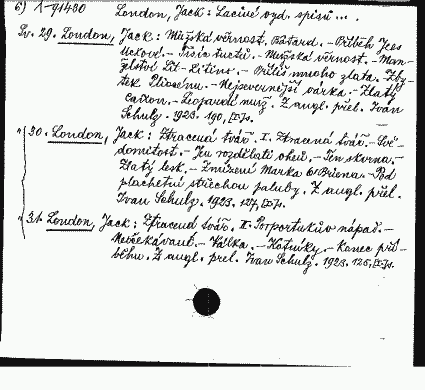 6) 1-91480 London, Jack: Laciné vyd. spisů ... .
Sv. 29. London, Jack: Mužská věrnost. Bâtard. - Příběh Jees
Uckové. - Tisíc tuctů. - Mužská věrnost. - Man-
želství Lit-Litino. - Příliš mnoho zlata. Zby-
tek Pliocénu. - Nejsevernější várka. - Zlatý
Cañon. - Leopardí muž. Z angl. přel. Ivan
Schulz. - 1923. 190, [I] s.
" 30. London, Jack: Ztracená tvář. I. Ztracená tvář. - Svě-
domitost. - Jen rozdělati oheň. - Ten skvrna. -
Zlatý lesk. - Zmizení Marka O'Briena. - Pod
plachetní střechou paluby. Z angl. přel.
Ivan Schulz. 1923. 127, [I] s.
" 31. London, Jack: Ztracená tvář. II. Porportukův nápad. -
Neočekávané. - Válka. - Kožníky. - Konec pří-
běhu. Z angl. přel. Ivan Schulz. 1923. 125, [I] s.